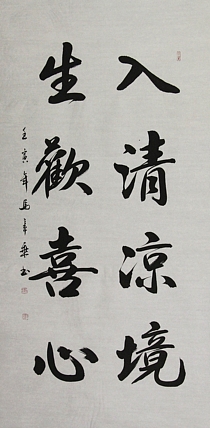 入清涼境
生歡喜心
壬寅年馬年乘书